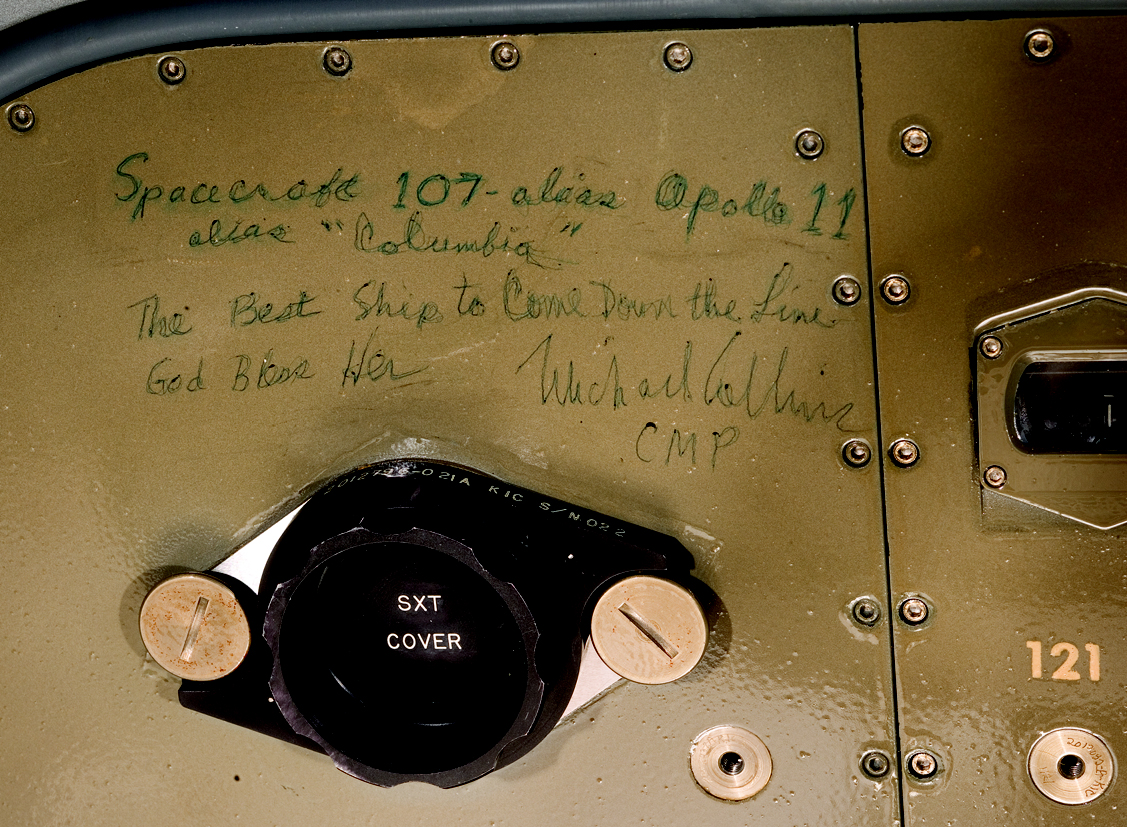 Spacecraft 107 - alias Apollo 11
alias "Columbia"
The Best Ship to Come Down the Line
God Bless Her Michael Collins
CMP
-021A KIC S/N 022
SXT
COVER
121